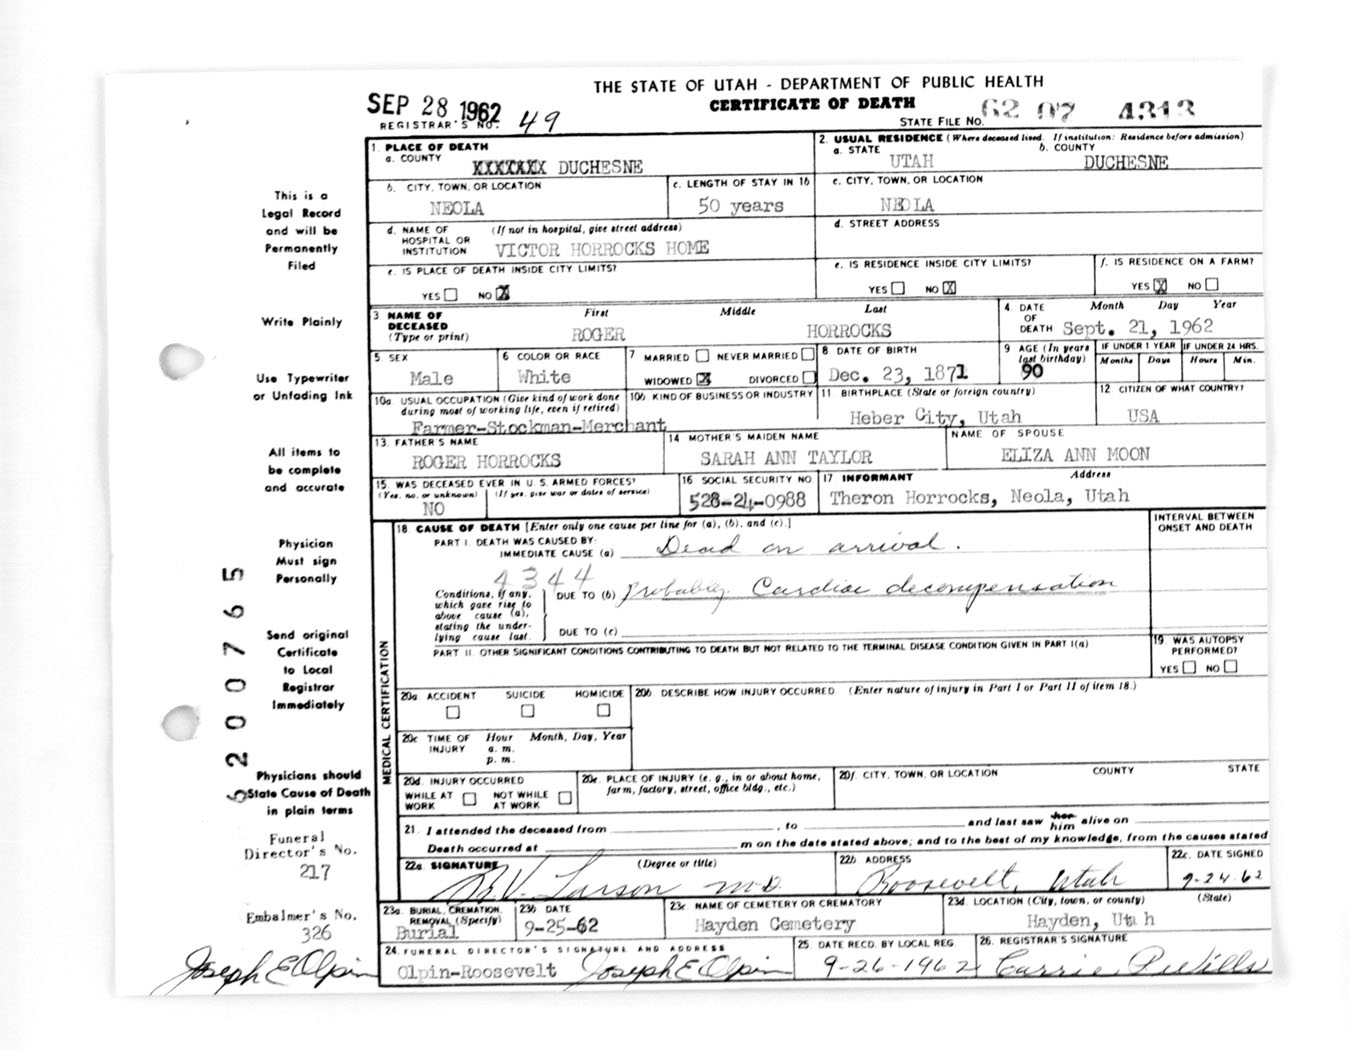 THE STATE OF UTAH - DEPARTMENT OF PUBLIC HEALTH
SEP 28 1962
CERTIFICATE OF DEATH
REGISTRAR'S NO. 49
STATE FILE NO. 62 07 4313
1. PLACE OF DEATH
a. COUNTY DUCHESNE
2. USUAL RESIDENCE (Where deceased lived. If institution: Residence before admission)
a. STATE UTAH
b. COUNTY DUCHESNE
b. CITY, TOWN, OR LOCATION NEOLA
c. LENGTH OF STAY IN 1b 50 years
c. CITY, TOWN, OR LOCATION NEOLA
d. NAME OF HOSPITAL OR INSTITUTION (If not in hospital, give street address) VICTOR HORROCKS HOME
d. STREET ADDRESS
e. IS PLACE OF DEATH INSIDE CITY LIMITS?
YES NO X
e. IS RESIDENCE INSIDE CITY LIMITS?
YES NO X
f. IS RESIDENCE ON A FARM?
YES X NO
3 NAME OF DECEASED (Type or print)
First Middle Last
ROGER HORROCKS
4 DATE OF DEATH
Month Day Year
Sept. 21, 1962
5 SEX Male
6 COLOR OR RACE White
7 MARRIED NEVER MARRIED
WIDOWED X DIVORCED
8 DATE OF BIRTH Dec. 23, 1871
9 AGE (In years last birthday) 90
IF UNDER 1 YEAR Months Days
IF UNDER 24 HRS. Hours Min.
10a USUAL OCCUPATION (Give kind of work done during most of working life, even if retired)
Farmer-Stockman-Merchant
10b KIND OF BUSINESS OR INDUSTRY
11 BIRTHPLACE (State or foreign country)
Heber City, Utah
12 CITIZEN OF WHAT COUNTRY?
USA
13. FATHER'S NAME
ROGER HORROCKS
14 MOTHER'S MAIDEN NAME
SARAH ANN TAYLOR
NAME OF SPOUSE
ELIZA ANN MOON
15. WAS DECEASED EVER IN U. S. ARMED FORCES?
(Yes, no, or unknown) (If yes, give war or dates of service)
NO
16 SOCIAL SECURITY NO
528-24-0988
17 INFORMANT Address
Theron Horrocks, Neola, Utah
MEDICAL CERTIFICATION
18 CAUSE OF DEATH [Enter only one cause per line for (a), (b), and (c).]
INTERVAL BETWEEN ONSET AND DEATH
PART I. DEATH WAS CAUSED BY:
IMMEDIATE CAUSE (a) Dead on arrival.
4344
Conditions, if any, which gave rise to above cause (a), stating the underlying cause last.
DUE TO (b) Probably Cardiac decompensation
DUE TO (c)
PART II. OTHER SIGNIFICANT CONDITIONS CONTRIBUTING TO DEATH BUT NOT RELATED TO THE TERMINAL DISEASE CONDITION GIVEN IN PART I(a)
19. WAS AUTOPSY PERFORMED?
YES NO
20a ACCIDENT SUICIDE HOMICIDE
20b. DESCRIBE HOW INJURY OCCURRED (Enter nature of injury in Part I or Part II of item 18.)
20c TIME OF INJURY
Hour Month, Day, Year
a. m.
p. m.
20d. INJURY OCCURRED
WHILE AT WORK NOT WHILE AT WORK
20e. PLACE OF INJURY (e. g., in or about home, farm, factory, street, office bldg., etc.)
20f. CITY, TOWN, OR LOCATION COUNTY STATE
21. I attended the deceased from , to and last saw her him alive on
Death occurred at m on the date stated above; and to the best of my knowledge, from the causes stated
22a SIGNATURE (Degree or title)
Larson M.D.
22b ADDRESS
Roosevelt, Utah
22c. DATE SIGNED
9-24-62
23a. BURIAL, CREMATION, REMOVAL (Specify)
Burial
23b DATE
9-25-62
23c NAME OF CEMETERY OR CREMATORY
Hayden Cemetery
23d. LOCATION (City, town, or county) (State)
Hayden, Utah
24. FUNERAL DIRECTOR'S SIGNATURE AND ADDRESS
Olpin-Roosevelt Joseph E Olpin
25 DATE RECD. BY LOCAL REG.
9-26-1962
26. REGISTRAR'S SIGNATURE
Carrie P Wills
This is a
Legal Record
and will be
Permanently
Filed
Write Plainly
Use Typewriter
or Unfading Ink
All items to
be complete
and accurate
Physician
Must sign
Personally
Send original
Certificate
to Local
Registrar
Immediately
Physicians should
State Cause of Death
in plain terms
5200765
Funeral
Director's No.
217
Embalmer's No.
326
Joseph E Olpin